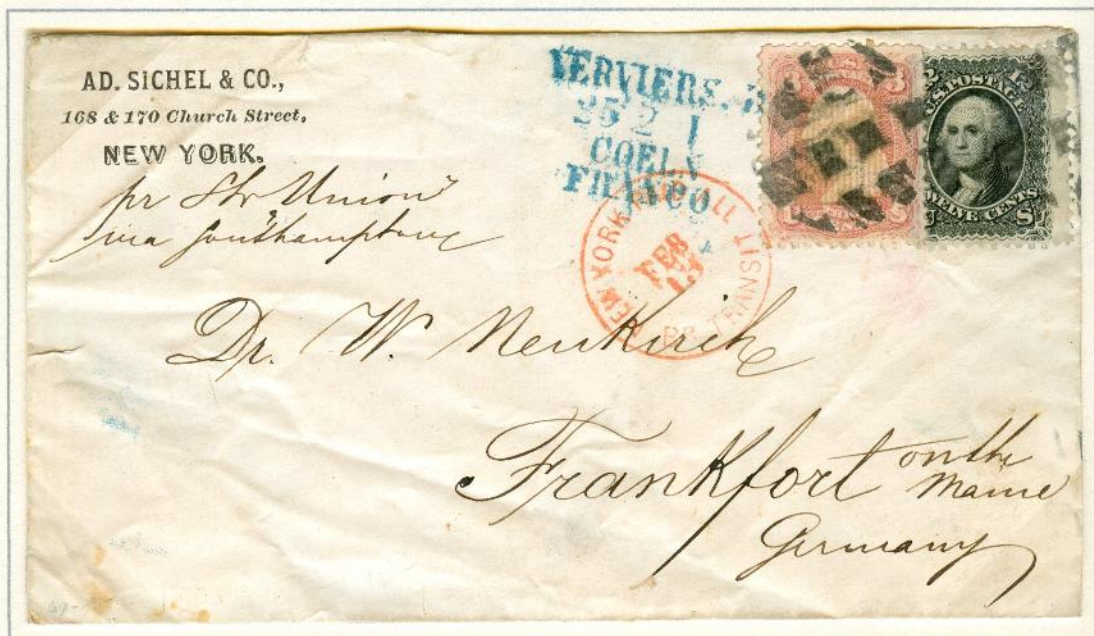 AD. SICHEL & CO.,
168 & 170 Church Street,
NEW YORK.
pr Str Union
via Southampton
VERVIERS.
25 2 I
COELN
FRANCO
NEW YORK ALL TRANSIT
FEB
3
U.S. POSTAGE
12
TWELVE CENTS
U S
Dr. W. Neukirch
Frankfort on the
Maine
Germany